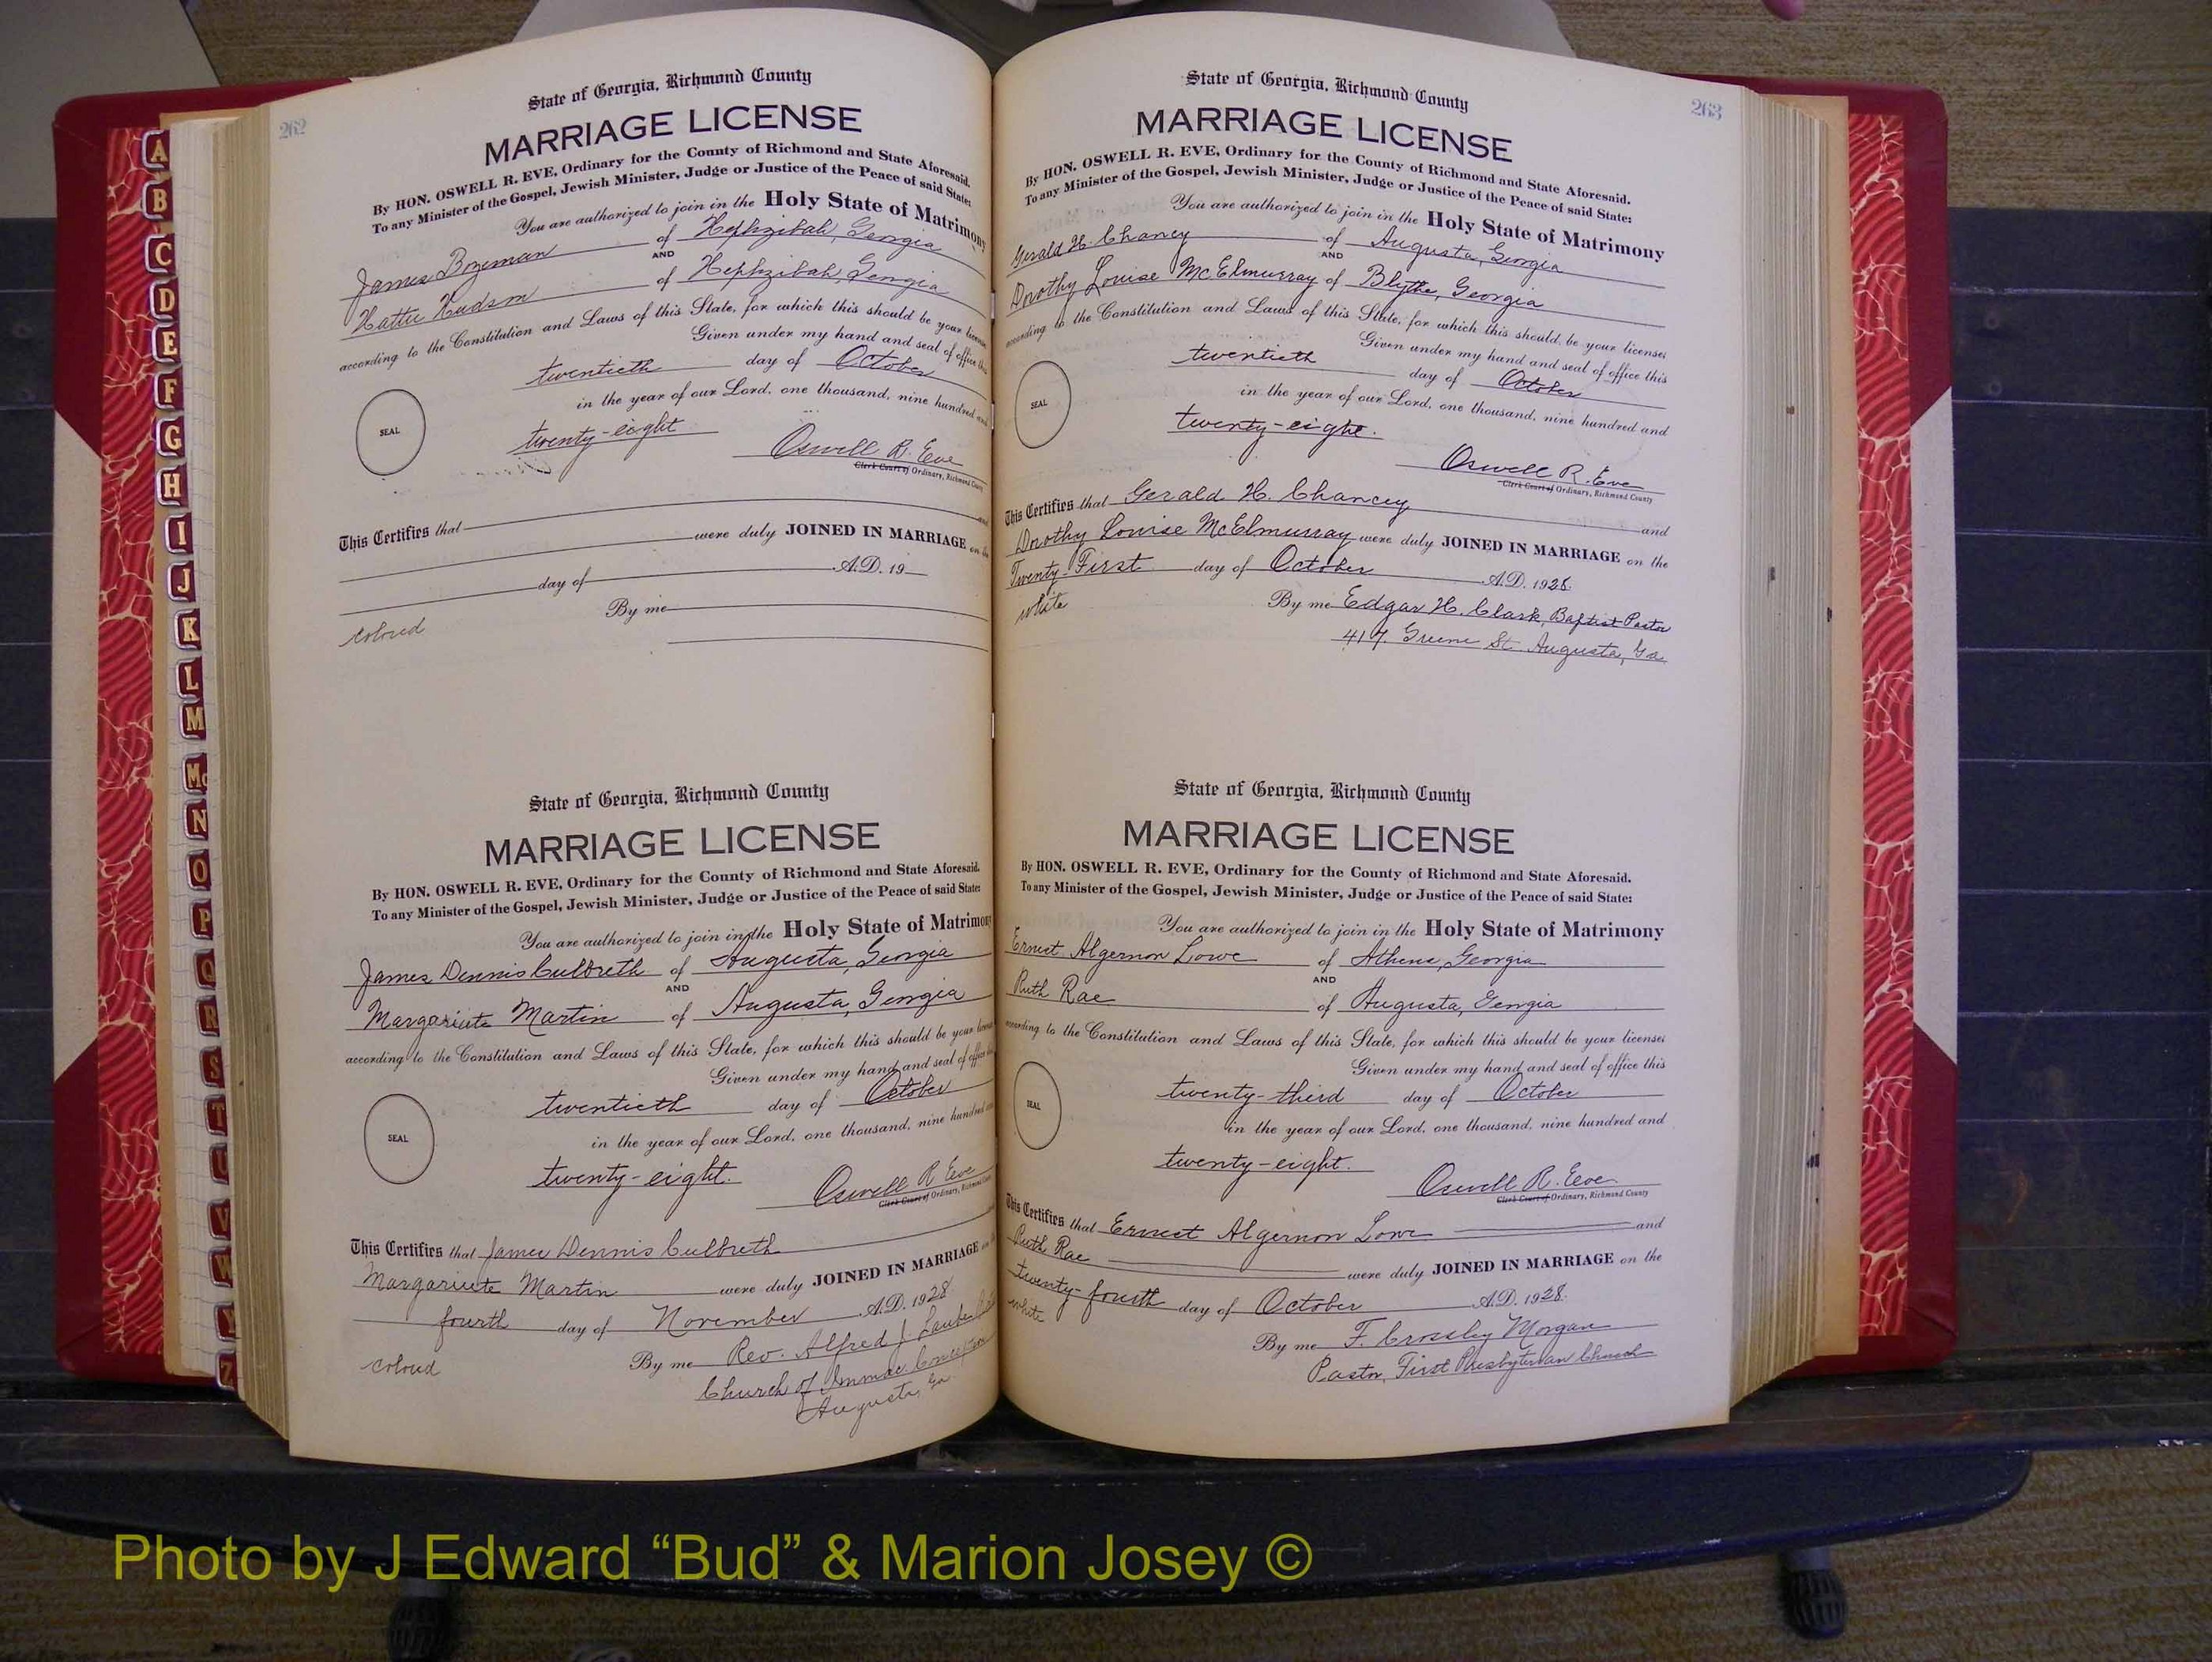 262
State of Georgia, Richmond County
MARRIAGE LICENSE
By HON. OSWELL R. EVE, Ordinary for the County of Richmond and State Aforesaid.
To any Minister of the Gospel, Jewish Minister, Judge or Justice of the Peace of said State:
You are authorized to join in the Holy State of Matrimony
James Bozeman of Hephzibah, Georgia
AND
Hattie Hudson of Hephzibah, Georgia
according to the Constitution and Laws of this State, for which this should be your license
Given under my hand and seal of office this
twentieth day of October
in the year of our Lord, one thousand, nine hundred and
SEAL
twenty-eight
Oswell R. Eve
Clerk Court of Ordinary, Richmond County
This Certifies that and
were duly JOINED IN MARRIAGE on the
day of A.D. 19
By me
Colored
State of Georgia, Richmond County
MARRIAGE LICENSE
By HON. OSWELL R. EVE, Ordinary for the County of Richmond and State Aforesaid.
To any Minister of the Gospel, Jewish Minister, Judge or Justice of the Peace of said State:
You are authorized to join in the Holy State of Matrimony
James Dennis Culbreth of Augusta, Georgia
AND
Margariete Martin of Augusta, Georgia
according to the Constitution and Laws of this State, for which this should be your license
Given under my hand and seal of office
twentieth day of October
in the year of our Lord, one thousand, nine hundred
SEAL
twenty-eight.
Oswell R Eve
Clerk Court of Ordinary, Richmond
This Certifies that James Dennis Culbreth
Margariete Martin were duly JOINED IN MARRIAGE
fourth day of November A.D. 1928
By me Rev. Alfred J.
Colored
Church of Immac. Conception
Augusta, Ga
263
State of Georgia, Richmond County
MARRIAGE LICENSE
By HON. OSWELL R. EVE, Ordinary for the County of Richmond and State Aforesaid.
To any Minister of the Gospel, Jewish Minister, Judge or Justice of the Peace of said State:
You are authorized to join in the Holy State of Matrimony
Gerald H. Chancy of Augusta, Georgia
AND
Dorothy Louise McElmurray of Blythe, Georgia
according to the Constitution and Laws of this State, for which this should be your licenses
Given under my hand and seal of office this
twentieth day of October
in the year of our Lord, one thousand, nine hundred and
SEAL
twenty-eight.
Oswell R. Eve
Clerk Court of Ordinary, Richmond County
This Certifies that Gerald H. Chancey and
Dorothy Louise McElmurray were duly JOINED IN MARRIAGE on the
Twenty-First day of October A.D. 1928.
white
By me Edgar H. Clark, Baptist Pastor
417 Greene St. Augusta, Ga.
State of Georgia, Richmond County
MARRIAGE LICENSE
By HON. OSWELL R. EVE, Ordinary for the County of Richmond and State Aforesaid.
To any Minister of the Gospel, Jewish Minister, Judge or Justice of the Peace of said State:
You are authorized to join in the Holy State of Matrimony
Ernest Algernon Lowe of Athens, Georgia
AND
Ruth Rae of Augusta, Georgia
according to the Constitution and Laws of this State, for which this should be your licenses
Given under my hand and seal of office this
twenty-third day of October
in the year of our Lord, one thousand, nine hundred and
SEAL
twenty-eight.
Oswell R. Eve
Clerk Court of Ordinary, Richmond County
This Certifies that Ernest Algernon Lowe and
Ruth Rae were duly JOINED IN MARRIAGE on the
twenty-fourth day of October A.D. 1928.
white
By me F. Crossley Morgan
Pastor, First Presbyterian Church
A
B
C
D
E
F
G
H
I
J
K
L
M
Mc
N
O
P
Q
R
S
T
U
V
W
Y
Z
Photo by J Edward “Bud” & Marion Josey ©